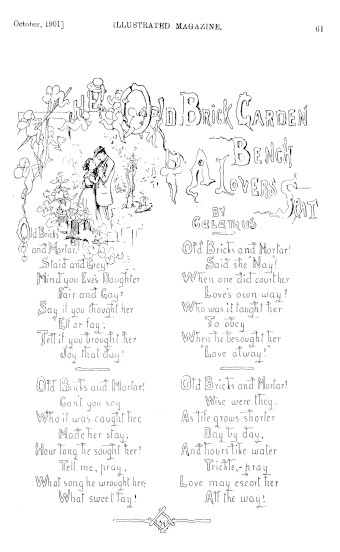 October, 1901]
ILLUSTRATED MAGAZINE.
61
THE OLD BRICK GARDEN
BENCH
A LOVERS SPAT
BY
Calamus
Old Bricks
and Mortar,
Staid and Grey!
Mind you Eve's Daughter
Fair and Gay?
Say if you thought her
Elf or fay;
Tell if you brought her
Joy that day!
Old Bricks and Mortar!
Can't you say
Who it was caught her,
Made her stay;
How long he sought her?
Tell me, pray,
What song he wrought her,-
What sweet lay!
Old Bricks and Mortar!
Said she 'Nay!
When one did court her
Love's own way?
Who was it taught her
To obey
When he besought her
"Love alway!"
Old Bricks and Mortar!
Wise were they.
As life grows shorter
Day by day,
And hours like water
Trickle,- pray
Love may escort her
All the way!